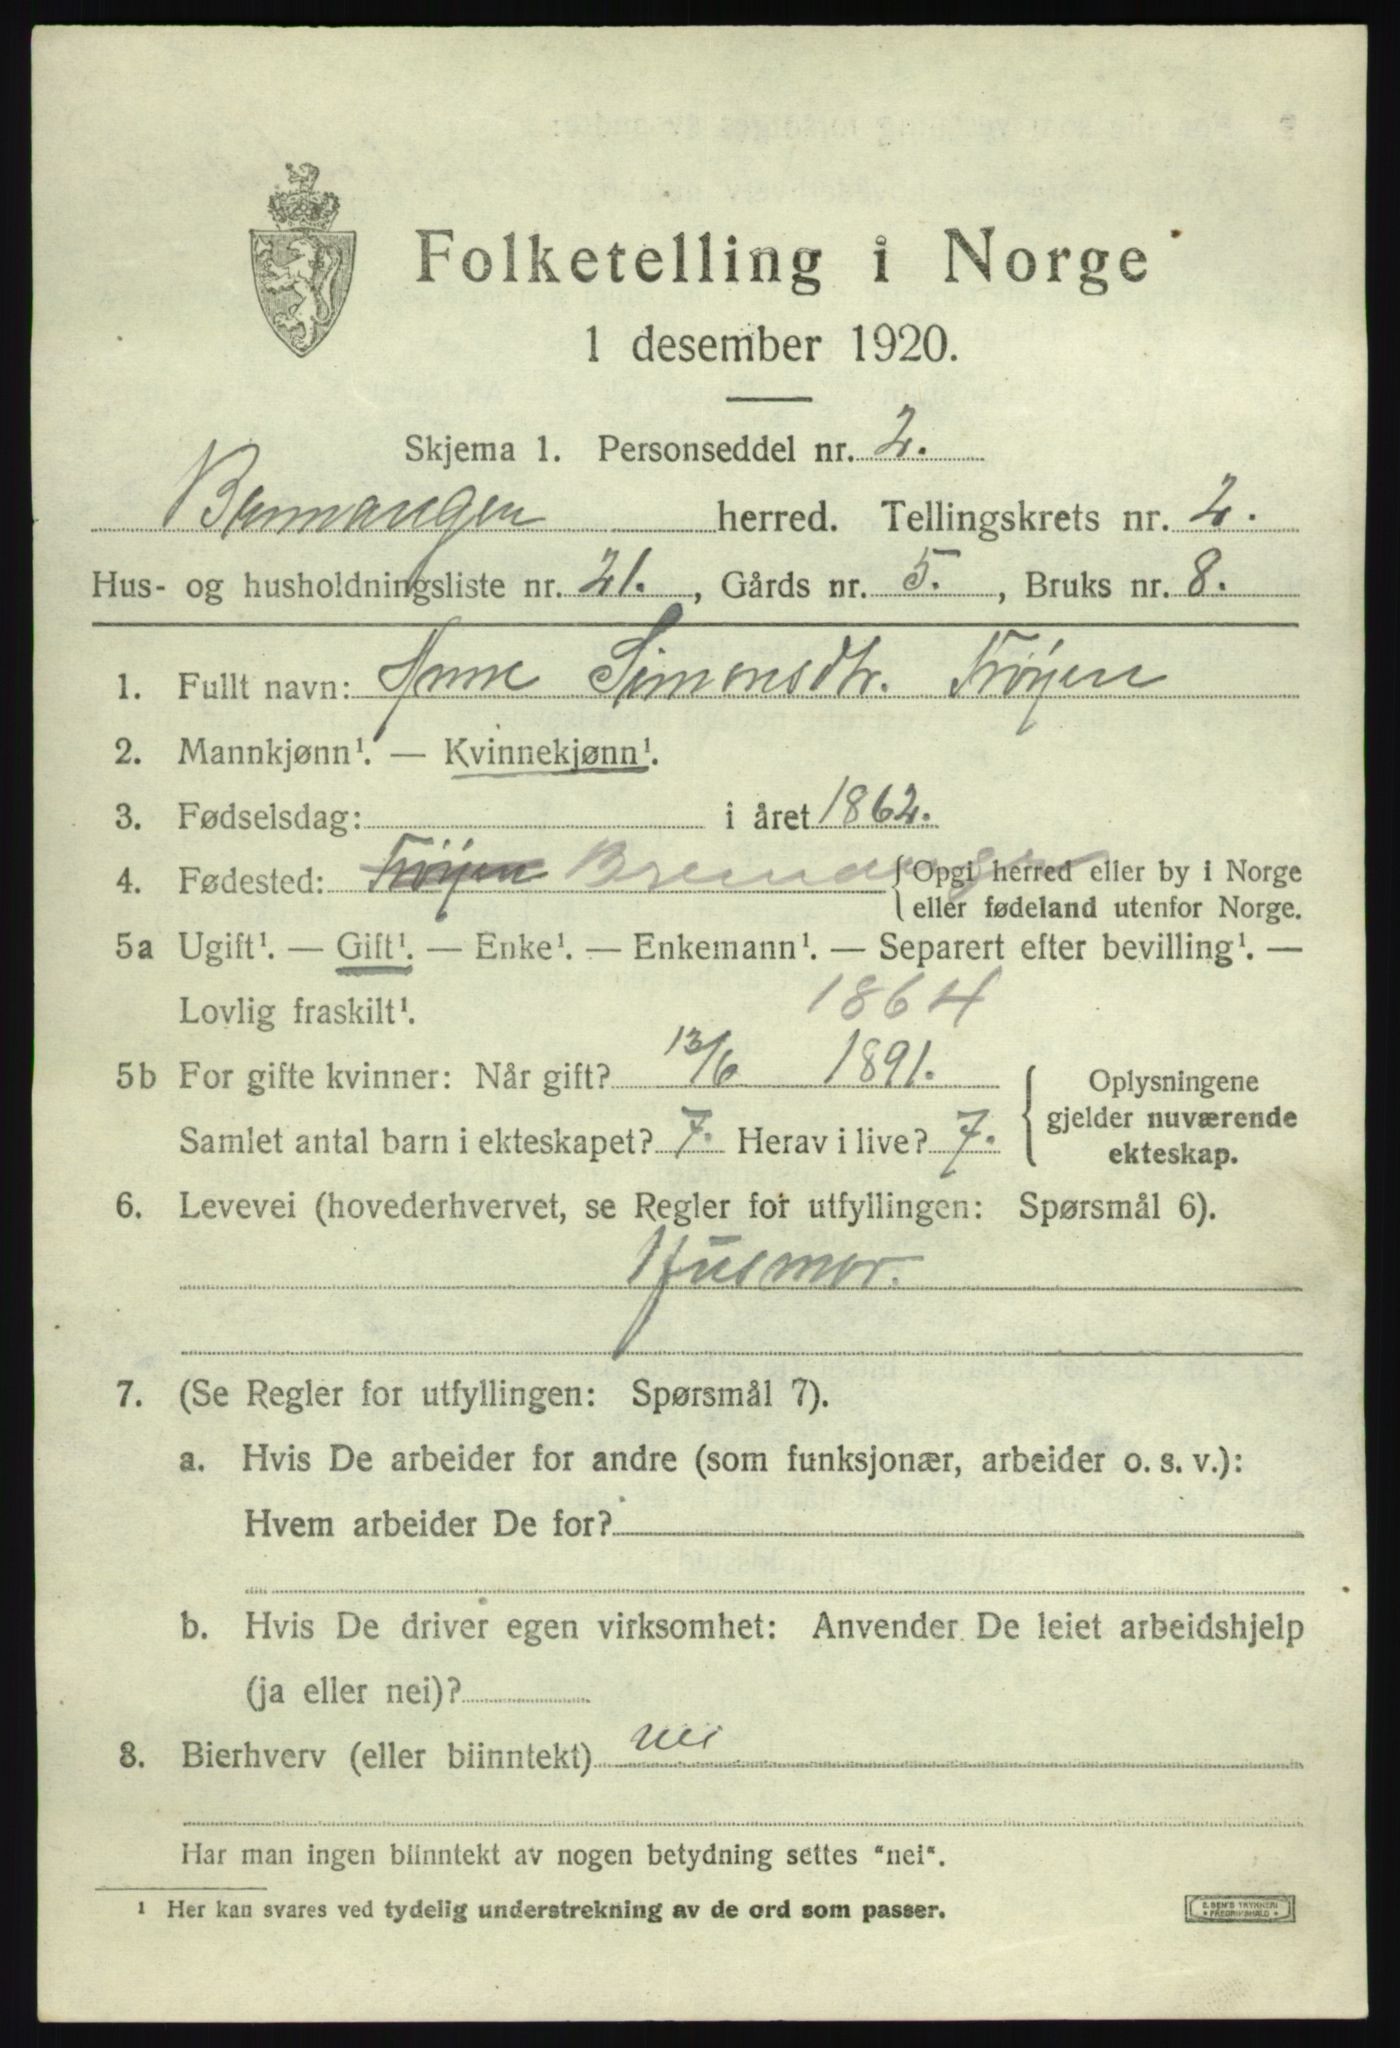 Folketelling i Norge
1 desember 1920.
Skjema 1. Personseddel nr. 2.
Bremanger herred. Tellingskrets nr. 2.
Hus- og husholdningsliste nr. 21., Gårds nr. 5., Bruks nr. 8.
1. Fullt navn: Anne Simonsdtr. Frøyen
2. Mannkjønn¹. — Kvinnekjønn¹.
3. Fødselsdag: i året 1862.
4. Fødested: Frøyen Bremanger {Opgi herred eller by i Norge
eller fødeland utenfor Norge.
5a Ugift¹. — Gift¹. — Enke¹. — Enkemann¹. — Separert efter bevilling¹. —
Lovlig fraskilt¹. 1864
5b For gifte kvinner: Når gift? 13/6 1891. { Oplysningene
gjelder nuværende
Samlet antal barn i ekteskapet? 7. Herav i live? 7. ekteskap.
6. Levevei (hovederhvervet, se Regler for utfyllingen: Spørsmål 6).
Husmor.
7. (Se Regler for utfyllingen: Spørsmål 7).
a. Hvis De arbeider for andre (som funksjonær, arbeider o. s. v.):
Hvem arbeider De for?
b. Hvis De driver egen virksomhet: Anvender De leiet arbeidshjelp
(ja eller nei)?
8. Bierhverv (eller biinntekt) nei
Har man ingen biinntekt av nogen betydning settes "nei".
¹ Her kan svares ved tydelig understrekning av de ord som passer.
TRYKKERI
FREDRIKSHALD